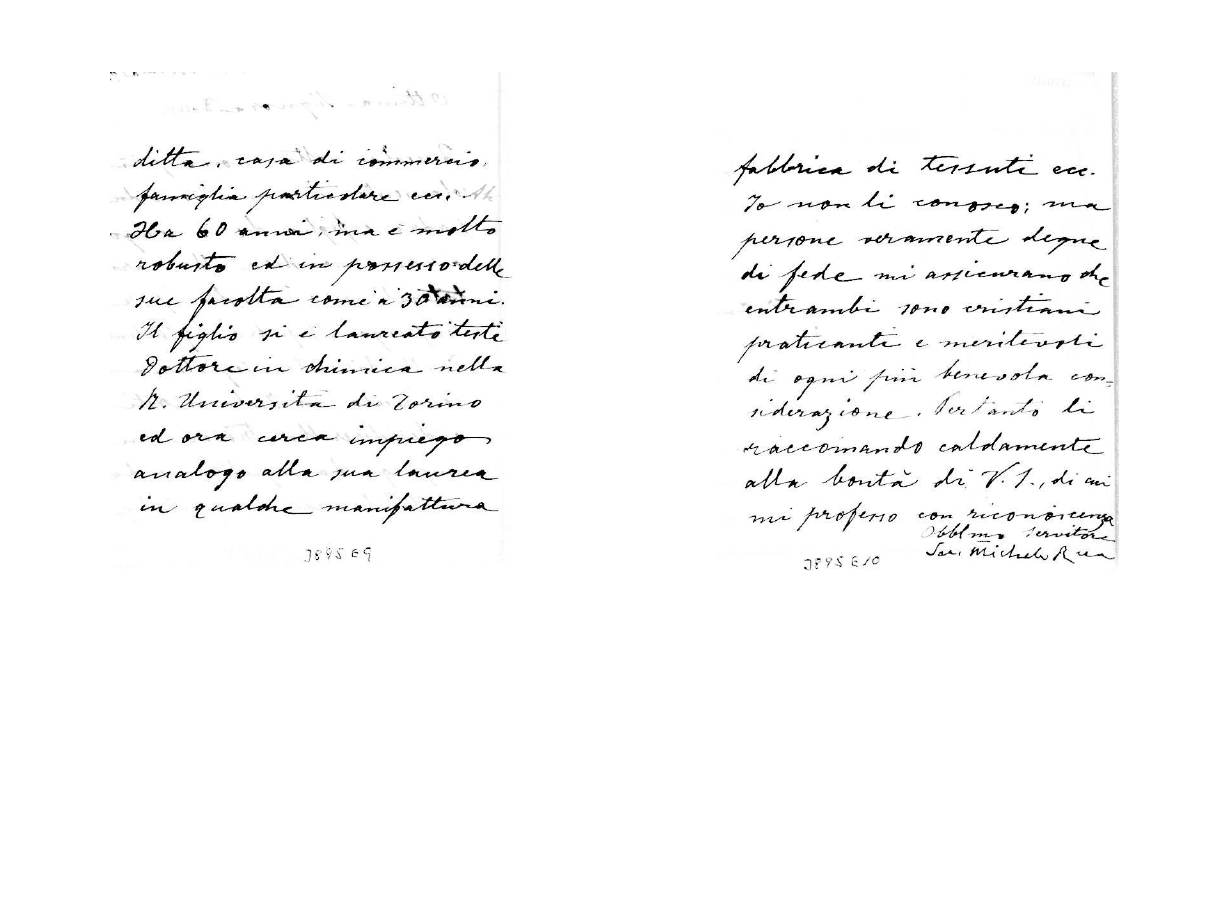 ditta, casa di commercio,
famiglia particolare ecc.
Ha 60 anni, ma è molto
robusto ed in possesso delle
sue facoltà come a 30 anni.
Il figlio si è laureato testè
Dottore in chimica nella
R. Università di Torino
ed ora cerca impiego
analogo alla sua laurea
in qualche manifattura
J895 E9
fabbrica di tessuti ecc.
Io non li conosco; ma
persone veramente degne
di fede mi assicurano che
entrambi sono cristiani
praticanti e meritevoli
di ogni più benevola con=
siderazione. Pertanto li
raccomando caldamente
alla bontà di V. S., di cui
mi professo con riconoscenza
Obbl.mo Servitore
Sac. Michele Rua
J895 E10